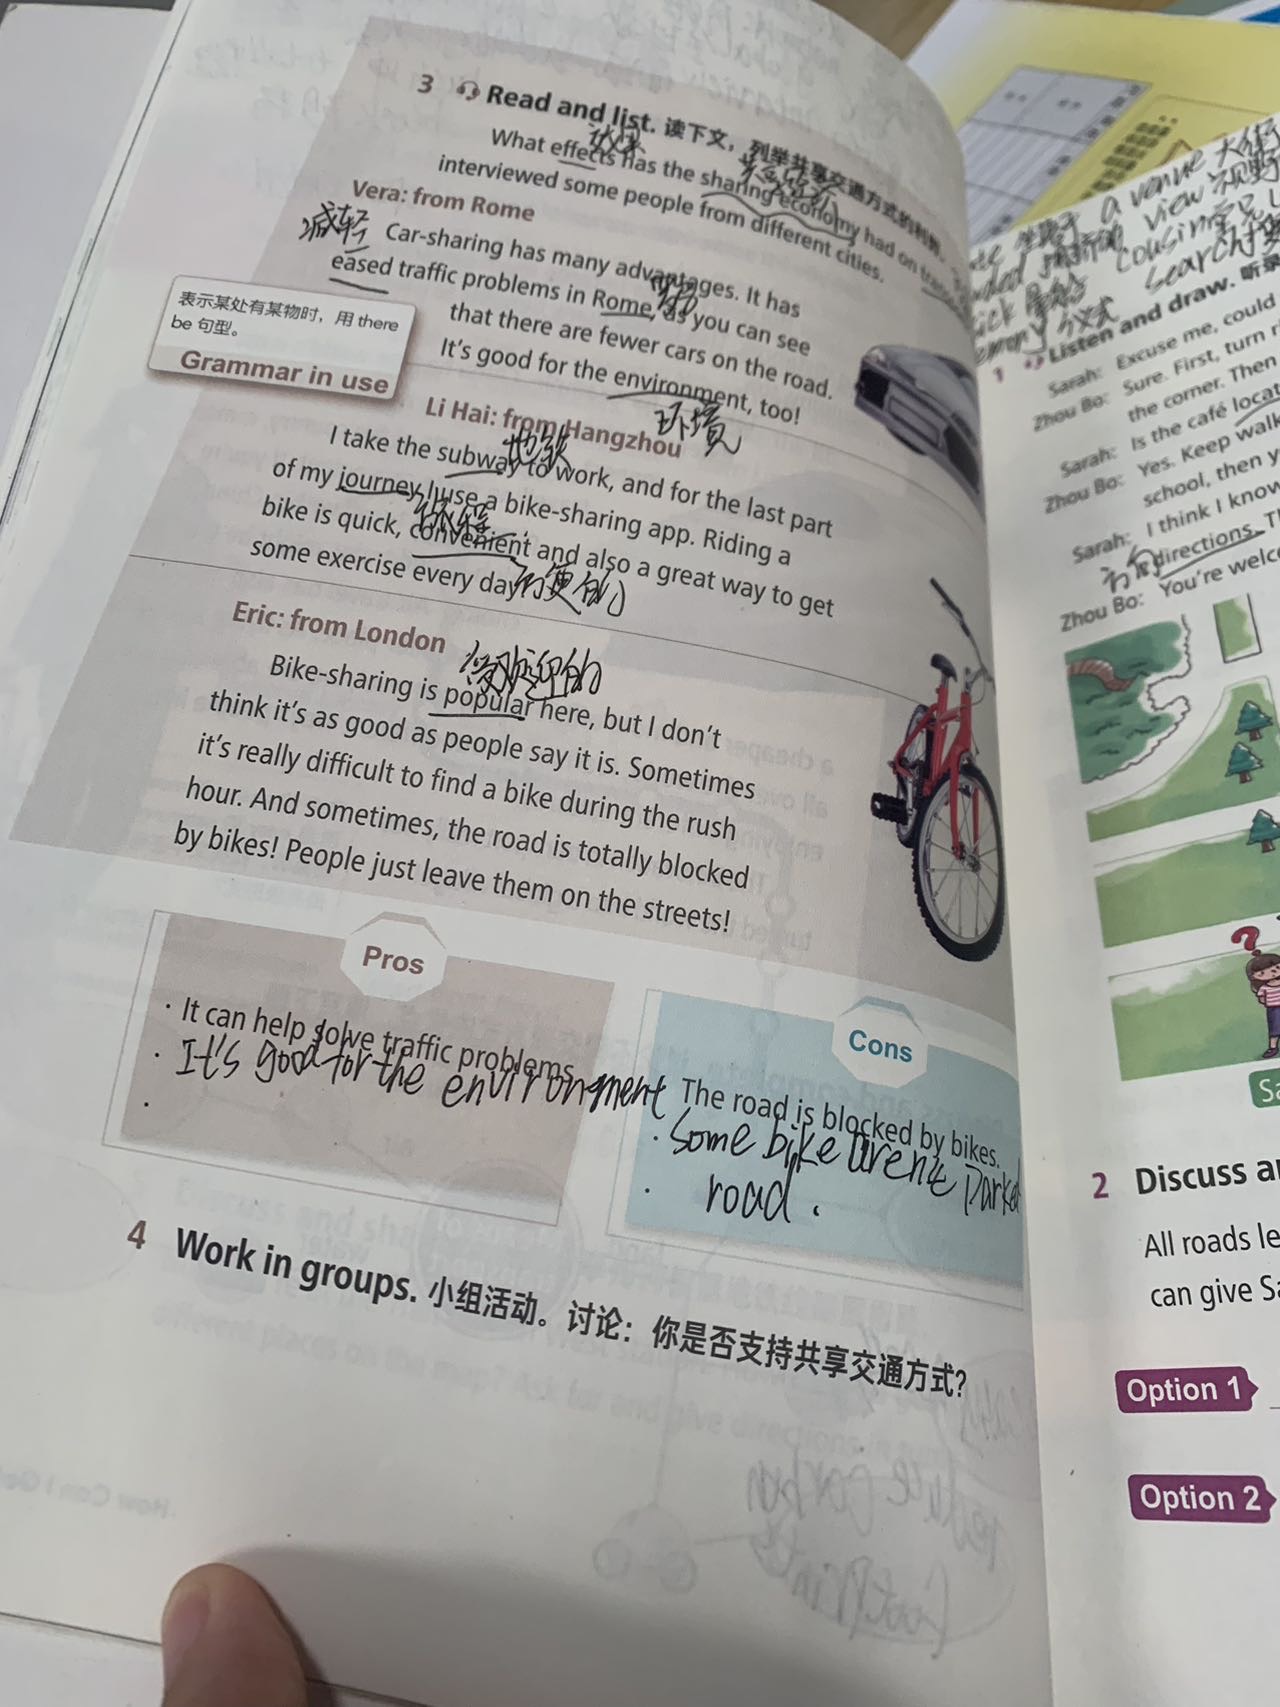 3 Read and list. 读下文，列举共享交通方式的利弊。
效果
What effects has the sharing economy had on
interviewed some people from different cities.
Vera: from Rome
减轻
Car-sharing has many advantages. It has
eased traffic problems in Rome, as you can see
that there are fewer cars on the road.
It's good for the environment, too!
环境
表示某处有某物时，用 there
be 句型。
Grammar in use
Li Hai: from Hangzhou
地铁
I take the subway to work, and for the last part
of my journey I use a bike-sharing app. Riding a
旅途
bike is quick, convenient and also a great way to get
some exercise every day
方便的
Eric: from London
受欢迎的
Bike-sharing is popular here, but I don't
think it's as good as people say it is. Sometimes
it's really difficult to find a bike during the rush
hour. And sometimes, the road is totally blocked
by bikes! People just leave them on the streets!
Pros
· It can help solve traffic problems
· It's good for the environgment
·
Cons
The road is blocked by bikes.
· Some bike aren't
· road.
4 Work in groups. 小组活动。讨论：你是否支持共享交通方式？
a venue
view 视野
cousin
search
仪式
1 Listen and draw. 听录
Sarah: Excuse me, could
Zhou Bo: Sure. First, turn
the corner. Then
Sarah: Is the café
Zhou Bo: Yes. Keep
school, then
Sarah: I think I know
directions.
Zhou Bo: You're
?
2 Discuss
All roads
can give
Option 1
Option 2